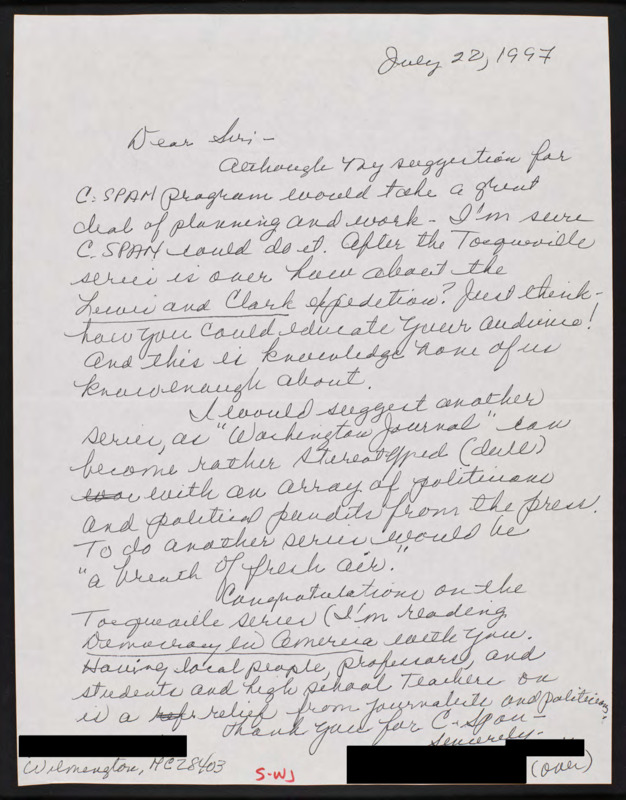 July 22, 1997
Dear Sirs -
Although my suggestion for
C-SPAN program would take a great
deal of planning and work - I'm sure
C-SPAN could do it. After the Tocqueville
series is over how about the
Lewis and Clark expedition? Just think -
how you could educate your audience!
And this is knowledge none of us
know enough about.
I would suggest another
series, as "Washington Journal" can
become rather stereotyped (dull)
with an array of politicians
and political pundits from the press.
To do another series would be
"a breath of fresh air."
Congratulations on the
Tocqueville series (I'm reading
Democracy in America with you.
Having local people, professors, and
students and high school teachers on
is a relief from journalists and politicians.
Thank you for C-Span -
Sincerely -
Wilmington, NC 28403
S-WJ
(over)